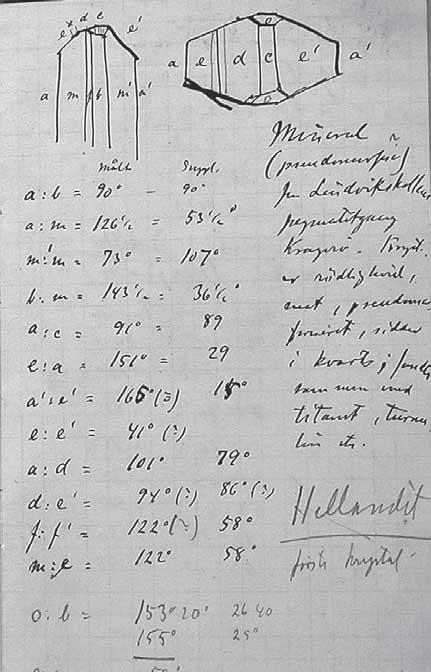 e' d c e'
a m f b m' a'
a e d c e' a'
e
o
målt Suppl.
a:b = 90° — 90°
a:m = 126½ = 53½°
m':m = 73° = 107°
b:m = 143½ = 36½°
a:c = 91° = 89
e:a = 151° = 29
a':e' = 165°(?) 15°
e:e' = 41° (?)
a:d = 101° 79°
d:e' = 94°(?) 86°(?)
f:f' = 122°(?) 58°
m:e = 122° 58°
o:b = 153°20' 26 40
155° 25°
Mineral
(pseudomorfose)
fra Lindvikskollens
pegmatitgang
Kragerö. Kryst.
er rödlighvid,
mat, pseudomor
foseret, sidder
i kvarts, sammen med
titanit, turma
lin etc.
Hellandit
første krystal.